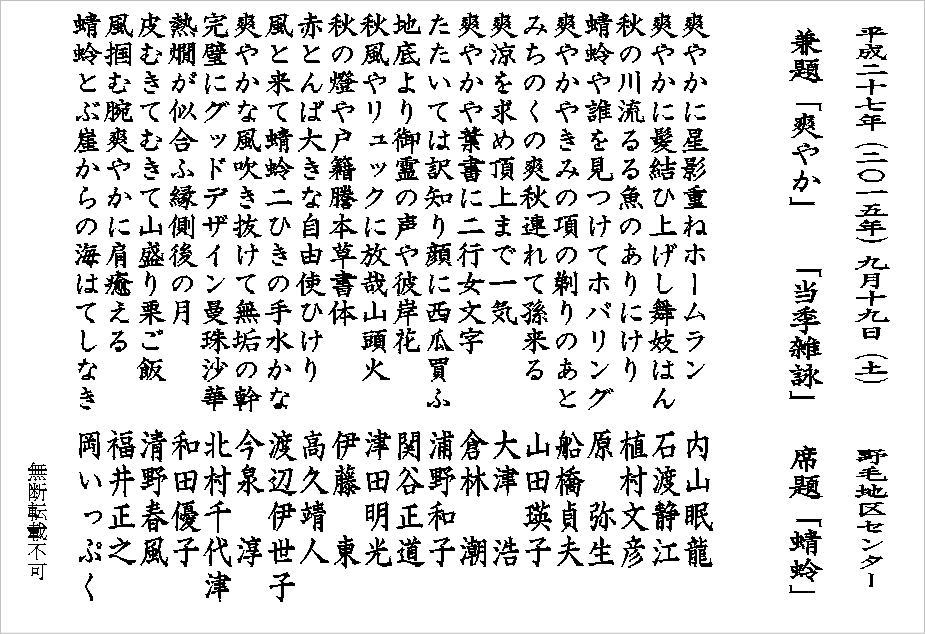 平成二十七年（二〇一五年）九月十九日（土）　野毛地区センター
兼題「爽やか」　「当季雑詠」　席題「蜻蛉」
爽やかに星影重ねホームラン　内山眠龍
爽やかに髪結ひ上げし舞妓はん　石渡静江
秋の川流るる魚のありにけり　植村文彦
蜻蛉や誰を見つけてホバリング　原　弥生
爽やかやきみの項の剃りのあと　船橋貞夫
みちのくの爽秋連れて孫来る　山田瑛子
爽涼を求め頂上まで一気　大津　浩
爽やかや葉書に二行女文字　倉林　潮
たたいては訳知り顔に西瓜買ふ　浦野和子
地底より御霊の声や彼岸花　関谷正道
秋風やリュックに放哉山頭火　津田明光
秋の燈や戸籍謄本草書体　伊藤　東
赤とんぼ大きな自由使ひけり　高久靖人
風と来て蜻蛉二ひきの手水かな　渡辺伊世子
爽やかな風吹き抜けて無垢の幹　今泉　淳
完璧にグッドデザイン曼珠沙華　北村千代津
熱燗が似合ふ縁側後の月　和田優子
皮むきてむきて山盛り栗ご飯　清野春風
風掴む腕爽やかに肩癒える　福井正之
蜻蛉とぶ崖からの海はてしなき　岡いっぷく
無断転載不可